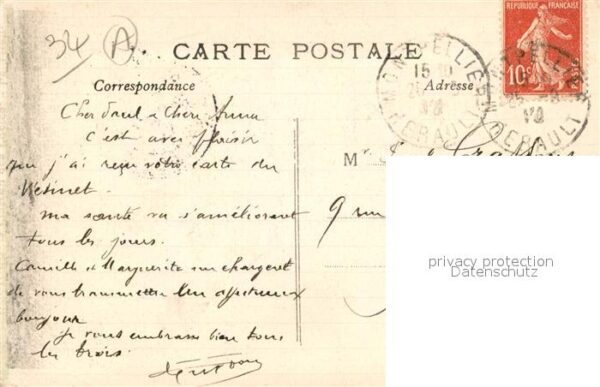 34 A
CARTE POSTALE
RÉPUBLIQUE FRANÇAISE
10c
MONTPELLIER
15
HERAULT
MONTPELLIER
HERAULT
Correspondance
Adresse
Cher Paul & Chère Anna
c'est avec plaisir
que j'ai reçu votre carte du
Vésinet.
ma santé va s'améliorant
tous les jours.
Camille & Marguerite me chargent
de vous transmettre leur affectueux
bonjour
je vous embrasse bien tous
les trois.
M
9 rue
privacy protection
Datenschutz